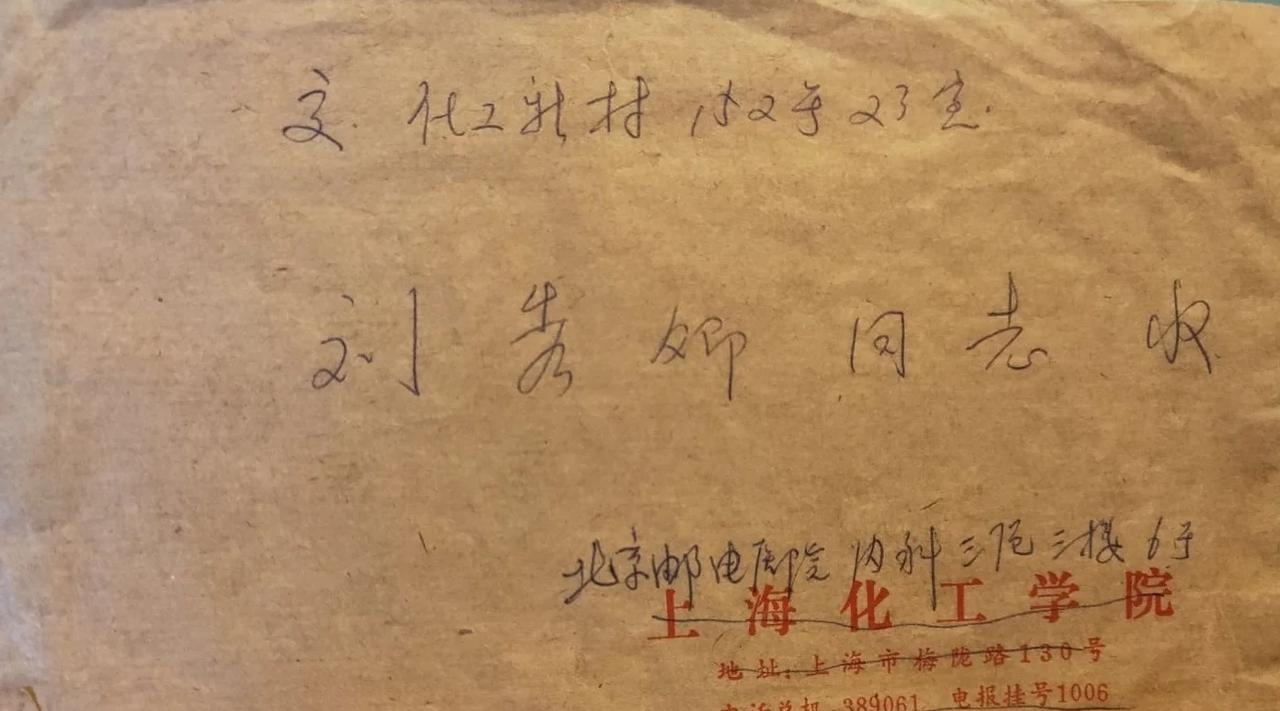 交 化工新村 152号 23室
刘 秀 卿 同 志 收
北京邮电医院 内科 三病 三楼 6号
上海化工学院
地址:上海市梅陇路130号
电话总机 389061 电报挂号1006